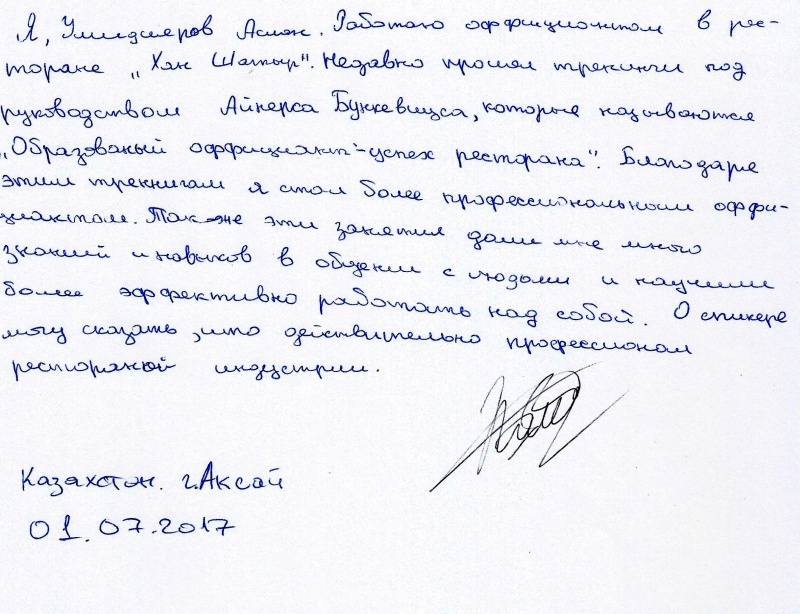 Я, Аслан. Работаю оффициантом в рес-
торане „Хан Шатыр". Недавно прошел тренинги под
руководством Айнерса Бункевицса, которые называются
„Образованый оффициант-успех ресторана". Благодаря
этим тренигам я стал более профессиональным оффи-
циантом. Так-же эти занятия дали мне много
знаний и навыков в общении с людьми и научили
более эффективно работать над собой. О спикере
могу сказать, что действительно профессионал
ресторанной индустрии.
Казахстан. г.Аксай
01.07.2017